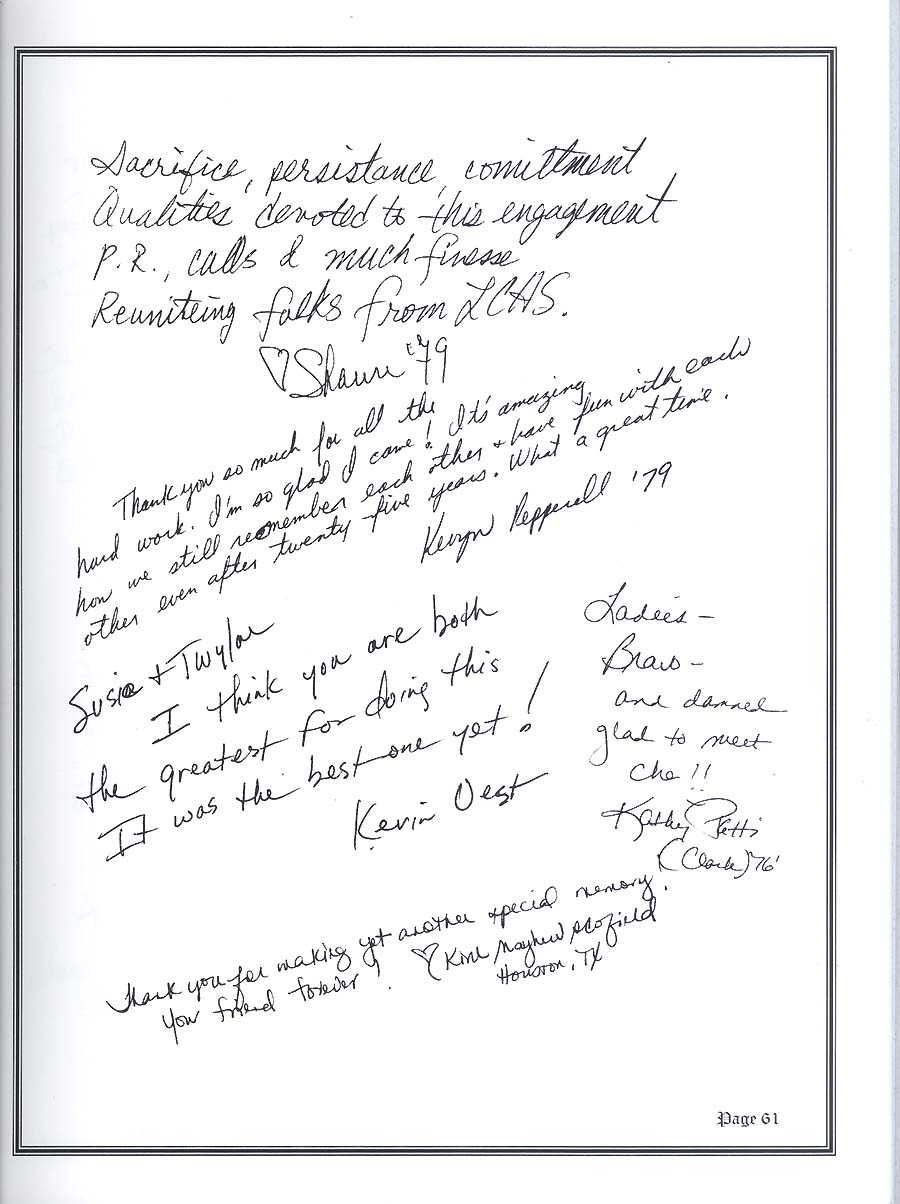 Sacrifice, persistance, comittment
Qualities devoted to this engagement
P.R., calls & much finesse
Reuniteing folks from LCHS.
♡Shawn '79
Thank you so much for all the
hard work. I'm so glad I came! It's amazing
how we still remember each other & have fun with each
other even after twenty-five years. What a great time.
Kevyn Pepperell '79
Susie + Twylar
I think you are both
the greatest for doing this
It was the best one yet!
Kevin Oest
Ladies –
Bravo –
and damned
glad to meet
cha!!
Kathy Petti
(Clark) '76'
Thank you for making yet another special memory.
Your friend forever!
♡ Kim Mayhew Scofield
Houston, TX
Page 61